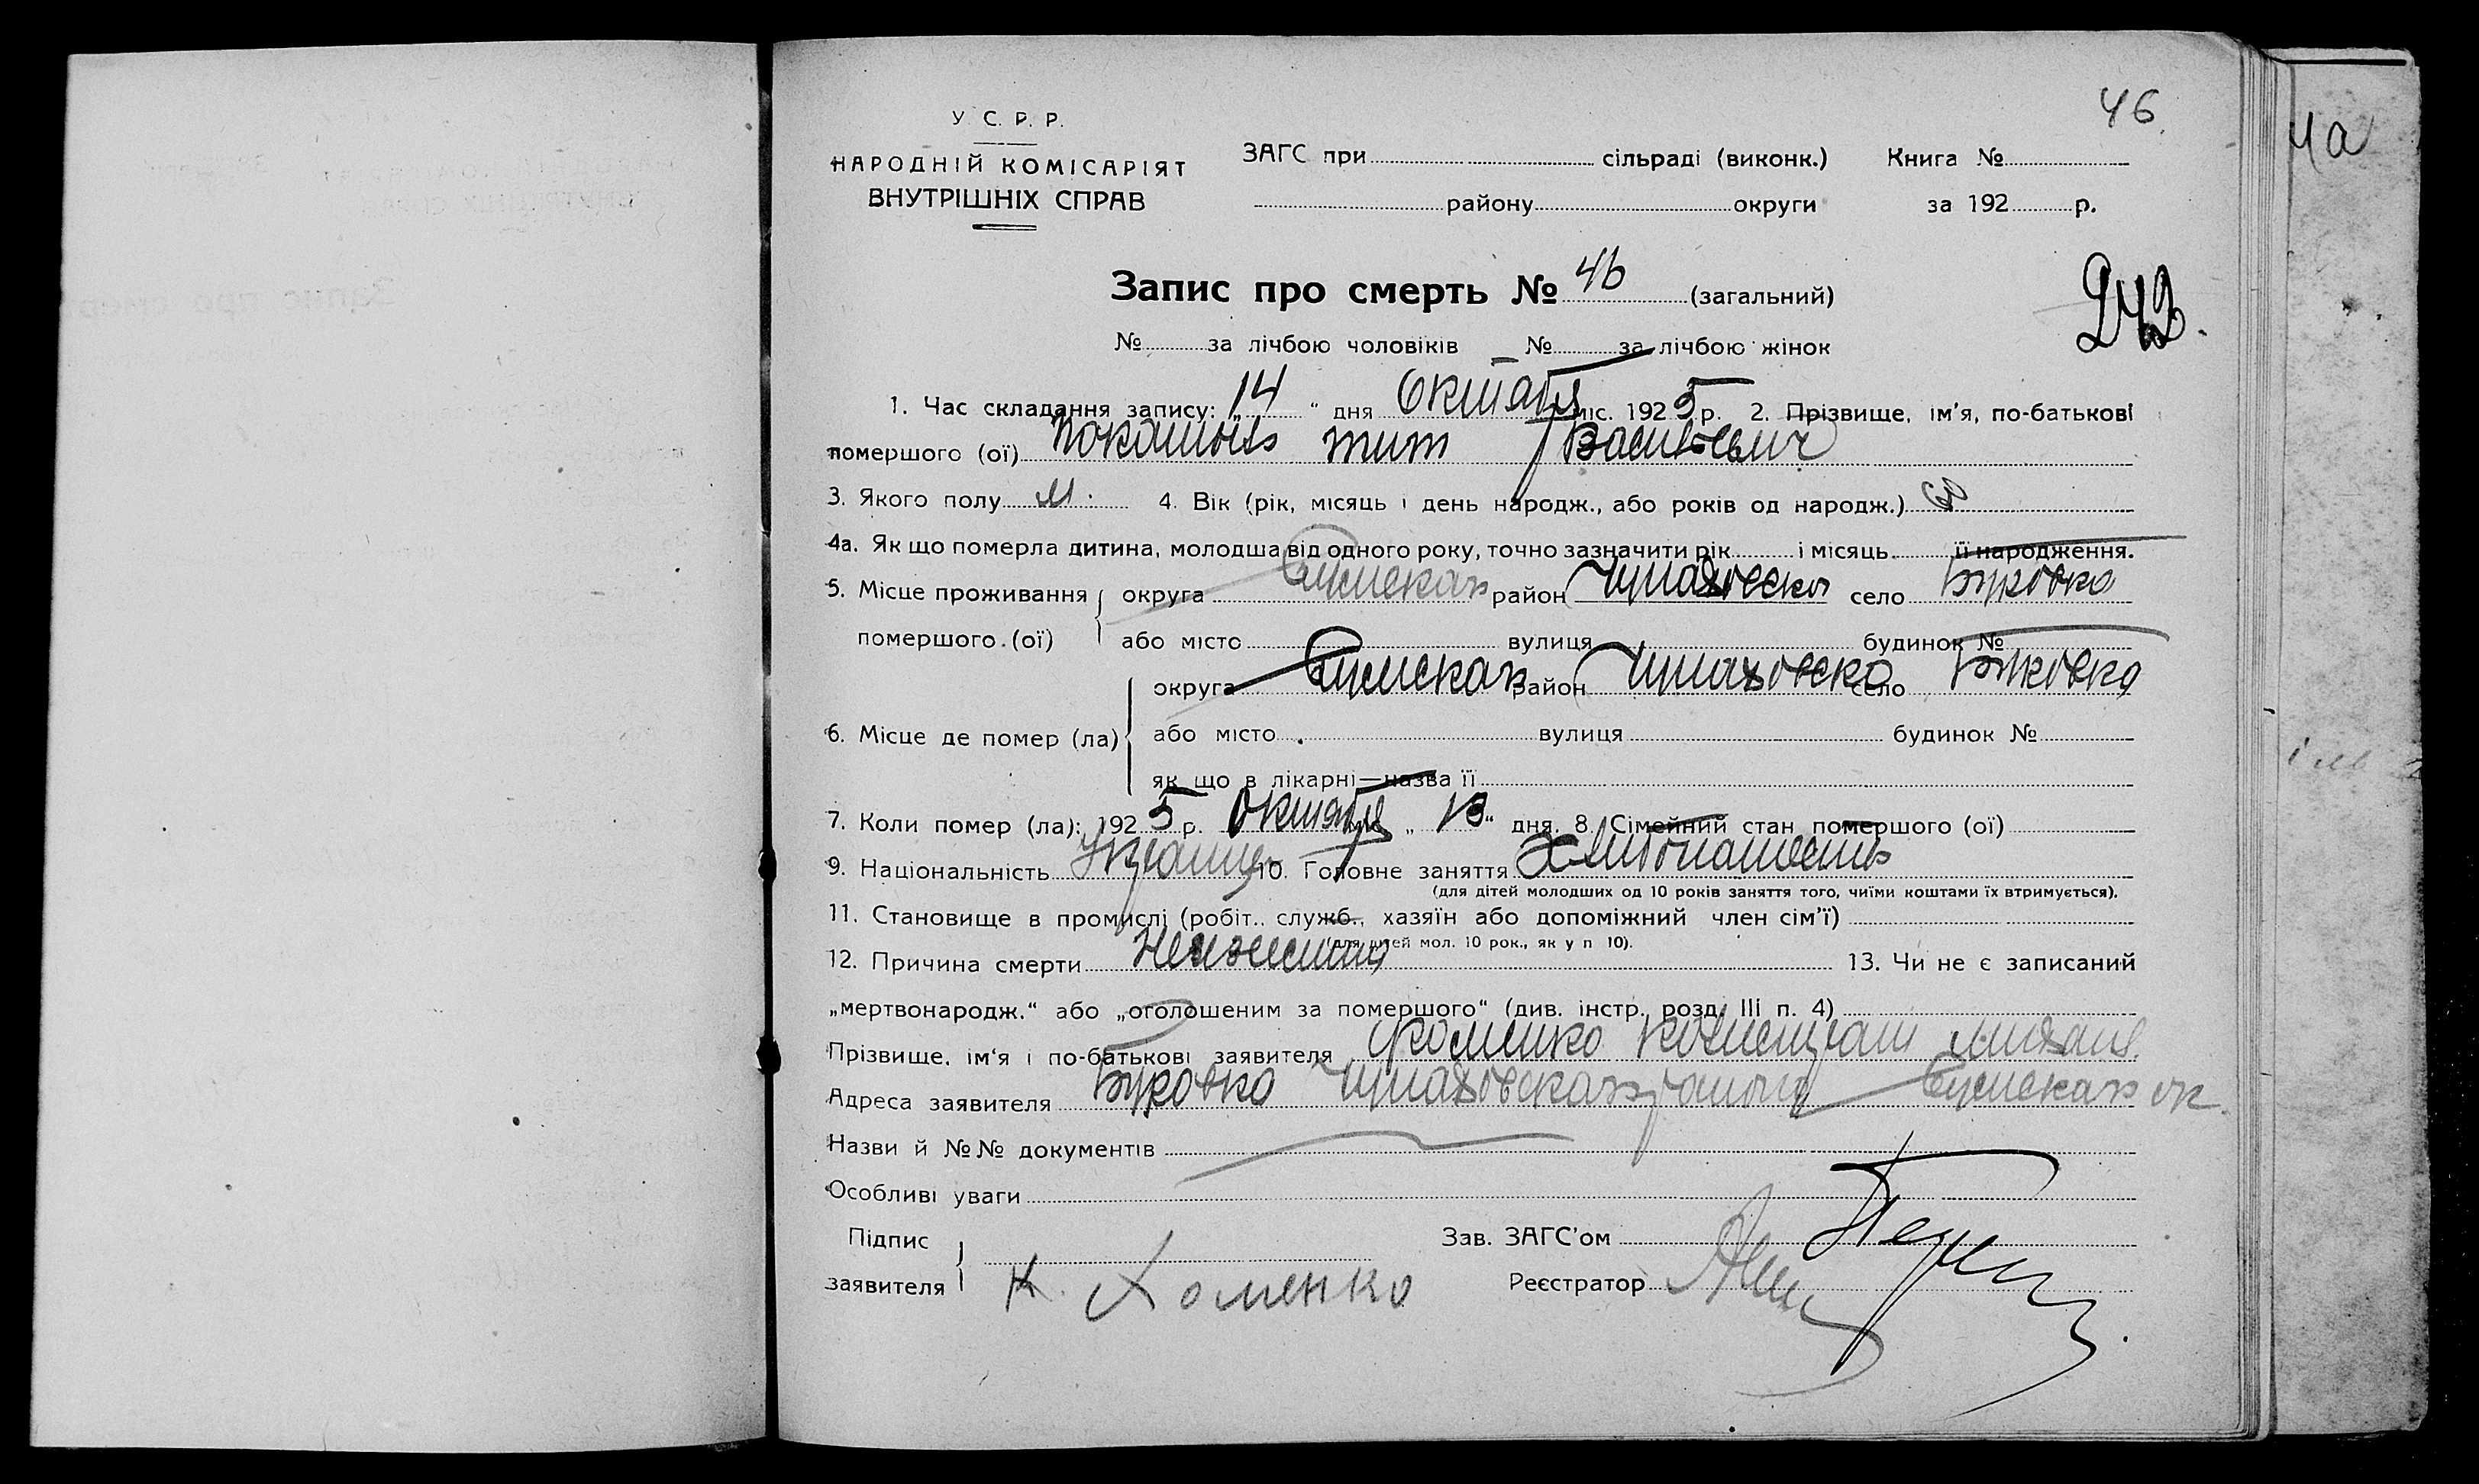 46.
У. С. Р. Р.
НАРОДНІЙ КОМІСАРІЯТ
ВНУТРІШНІХ СПРАВ
ЗАГС при сільраді (виконк.) Книга №
району округи за 192 р.
4а
Запис про смерть № 46 (загальний)
242.
№ за лічбою чоловіків № за лічбою жінок
1. Час складання запису: „14“ дня Октября міс. 1925 р. 2. Прізвище, ім'я, по-батькові
помершого (ої) тит Васильевич
3. Якого полу м. 4. Вік (рік, місяць і день народж., або років од народж.)
4а. Як що померла дитина, молодша від одного року, точно зазначити рік і місяць її народження.
5. Місце проживання округа Сумская район село
помершого (ої) або місто вулиця будинок №
округа Сумская район село
6. Місце де помер (ла) або місто вулиця будинок №
як що в лікарні—назва її
7. Коли помер (ла): 1925 р. Октября міс. „13“ дня. 8. Сімейний стан помершого (ої)
9. Національність Украинец 10. Головне заняття
(для дітей молодших од 10 років заняття того, чиїми коштами їх втримується).
11. Становище в промислі (робіт., служб., хазяїн або допоміжний член сім'ї)
(для дітей мол. 10 рок., як у п 10).
12. Причина смерти Неизвестна 13. Чи не є записаний
„мертвонародж.“ або „оголошеним за помершого“ (див. інстр. розд. III п. 4)
Прізвище, ім'я і по-батькові заявителя
Адреса заявителя района Сумская ок.
Назви й №№ документів
Особливі уваги
Підпис
заявителя К. Хоменко
Зав. ЗАГС'ом
Реєстратор